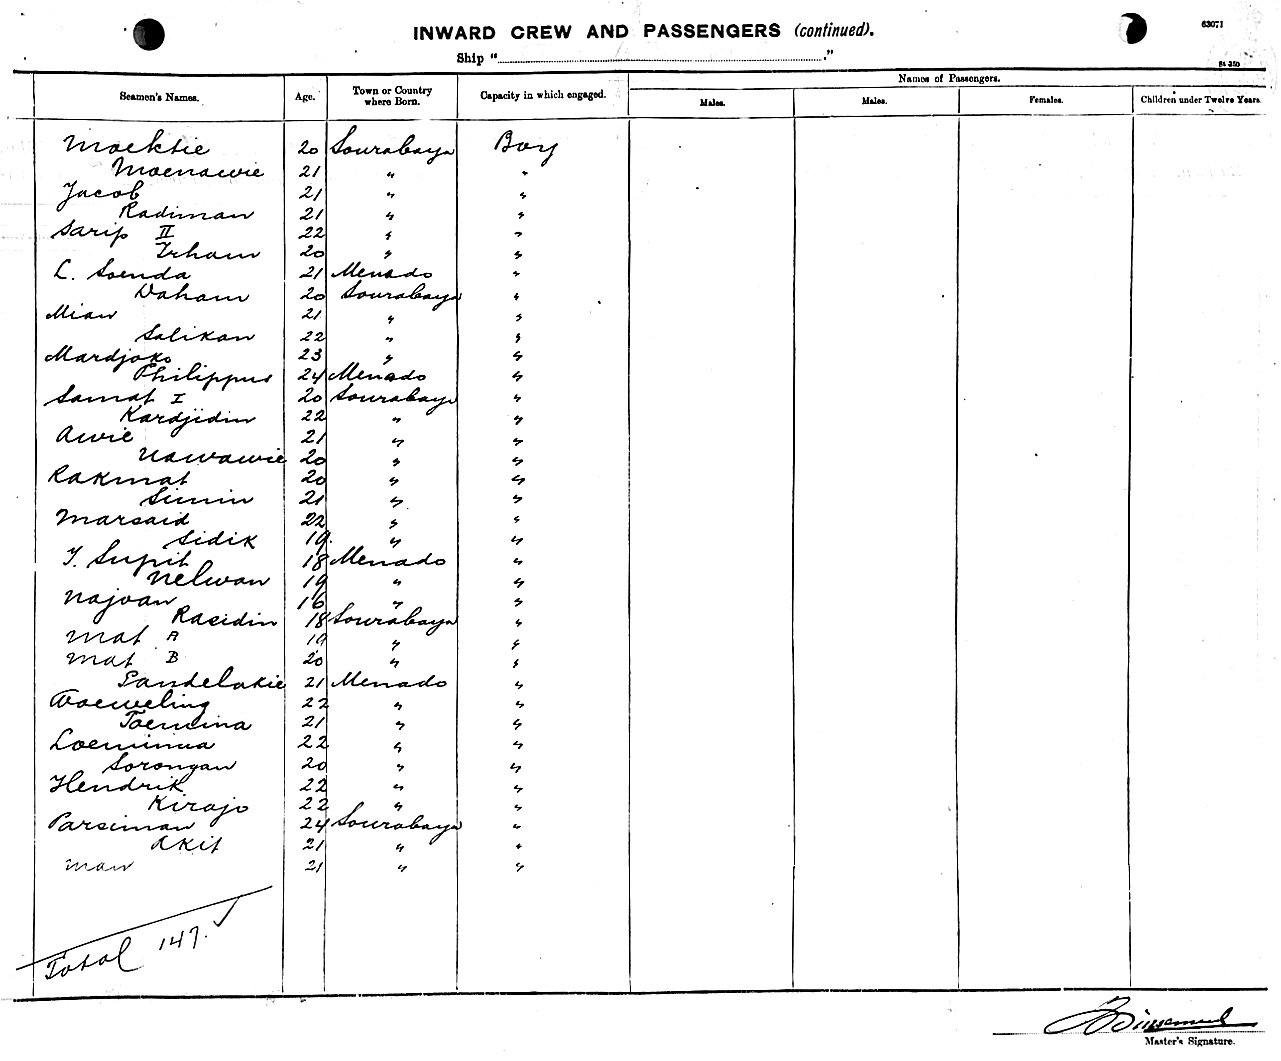 63071
INWARD CREW AND PASSENGERS (continued).
Ship " "
St 350
Names of Passengers.
Seamen's Names. Age. Town or Country where Born. Capacity in which engaged. Males. Males. Females. Children under Twelve Years.
Moektie 20 Sourabaya Boy
Moenawie 21 " "
Jacob 21 " "
Radiman 21 " "
Sarip II 22 " "
Irham 20 " "
L. Soenda 21 Menado "
Daham 20 Sourabaya "
Mian 21 " "
Salikan 22 " "
Mardjoko 23 " "
Philippus 24 Menado "
Samat I 20 Sourabaya "
Kardjidin 22 " "
Awie 21 " "
Nawawie 20 " "
Rakmat 20 " "
Simin 21 " "
Marsaid 22 " "
Sidik 19 " "
T. Supit 18 Menado "
Nelwan 19 " "
Najoan 16 " "
Rasidin 18 Sourabaya "
Mat A 19 " "
Mat B 20 " "
Pandelakie 21 Menado "
Woeweling 22 " "
Toemina 21 " "
Loeminua 22 " "
Sorongan 20 " "
Hendrik 22 " "
Kirajo 22 " "
Parsiman 24 Sourabaya "
Akit 21 " "
Man 21 " "
Total 147.
Master's Signature.